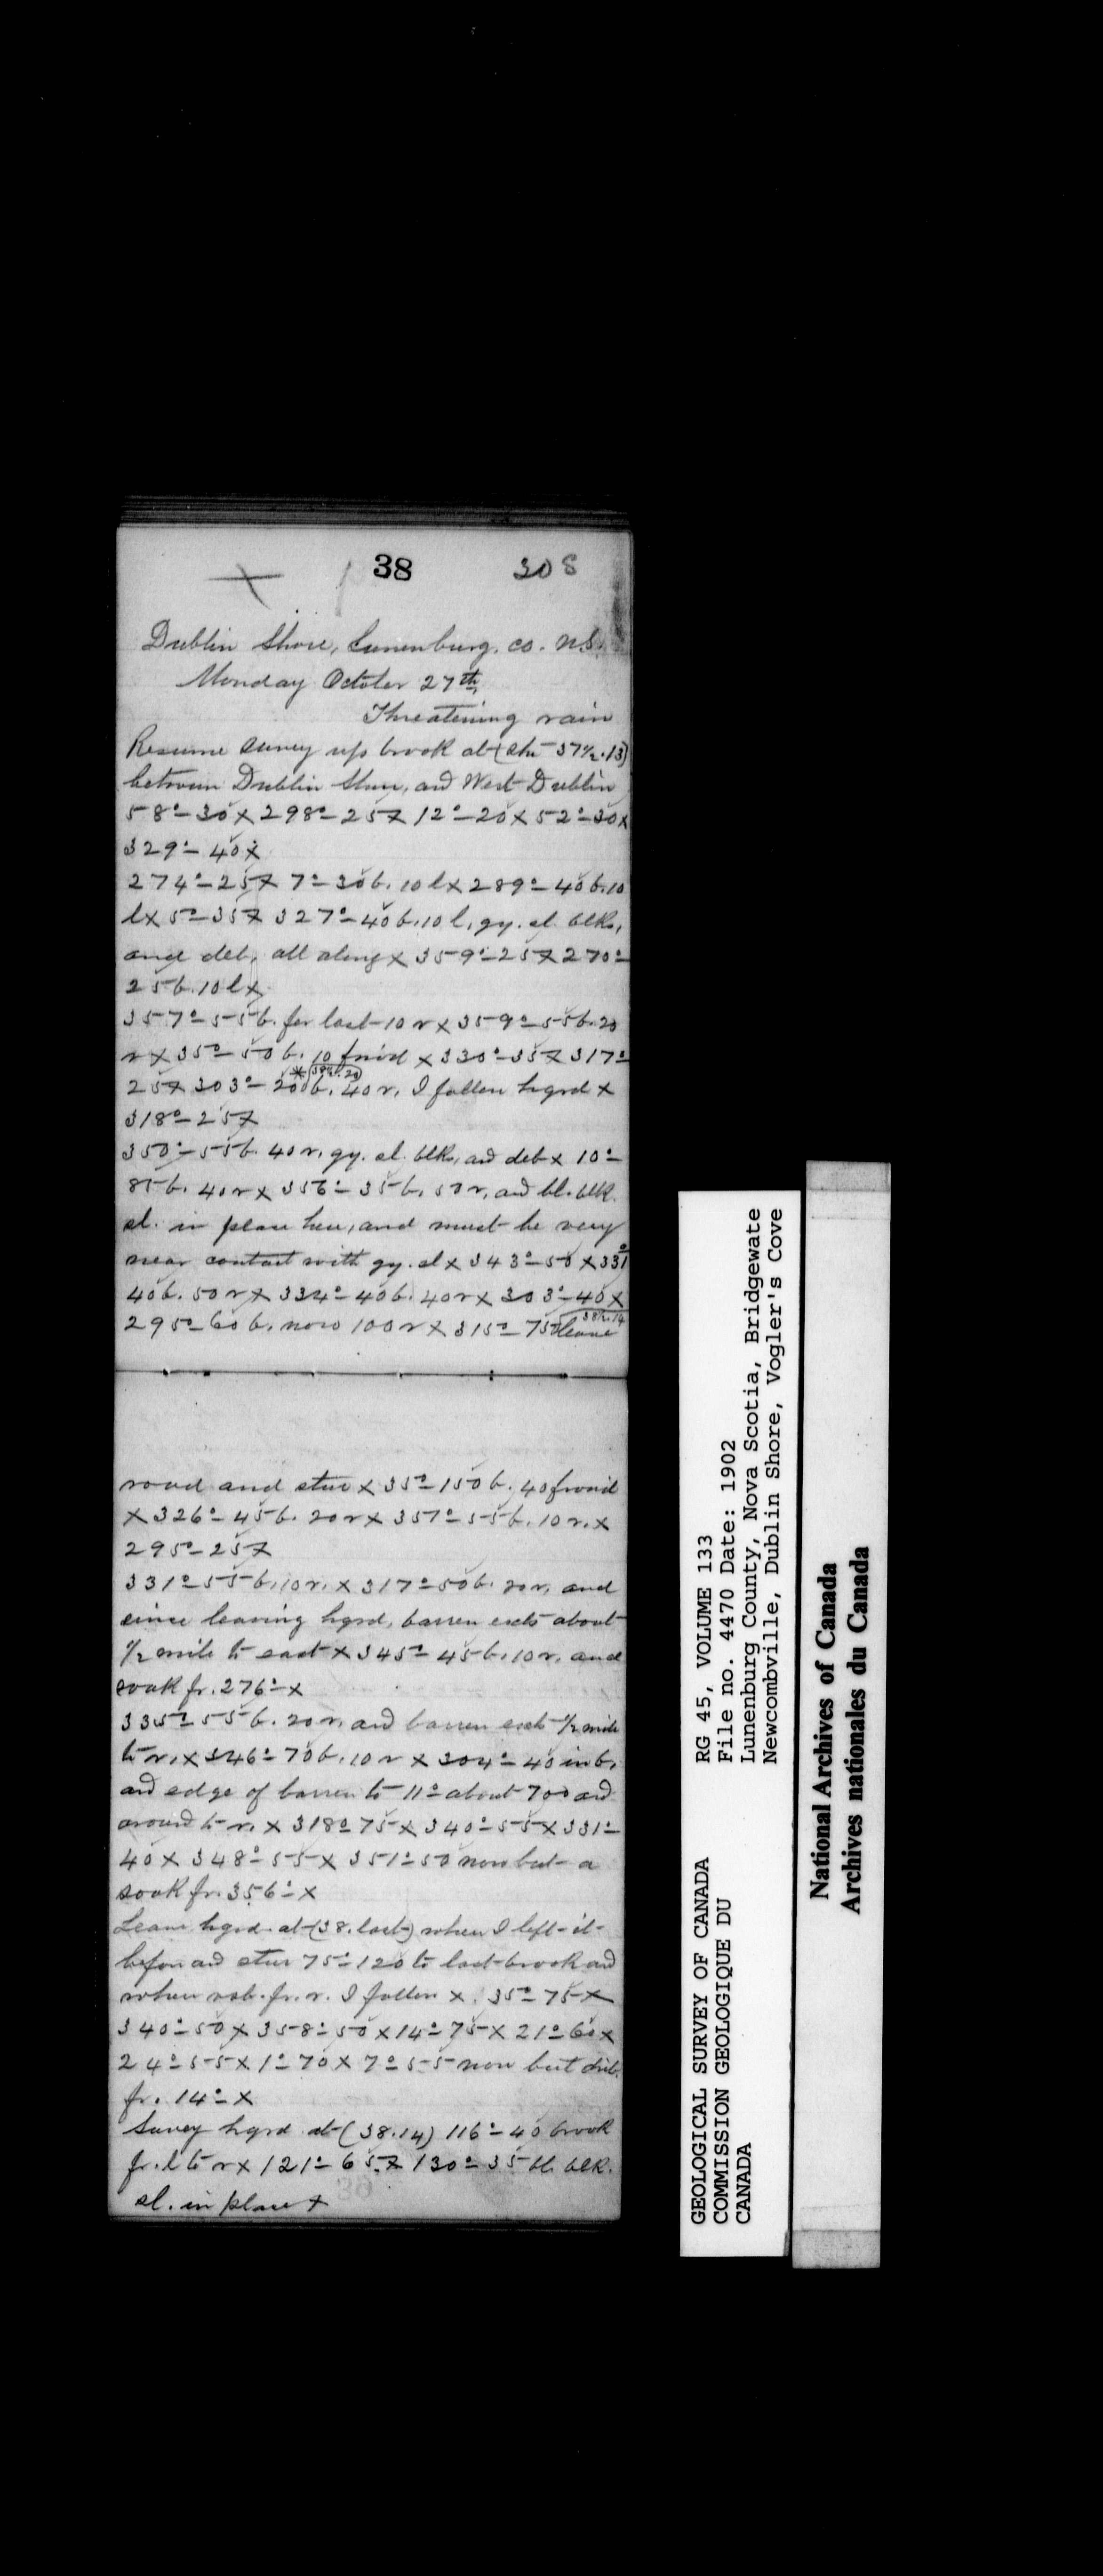 38 308
Dublin Shore, Lunenburg. co. N.S.
Monday October 27th,
Threatening rain
Resume survey up brook at (stn 37½.13)
between Dublin Shore, and West Dublin
58°-30 x 298°-25 x 12°-20 x 52°-30 x
329°- 40 x
274°-25 x 7°-30 b. 10 l x 289°-40 b. 10
l x 5°-35 x 327°-40 b. 10 l, gy. sl. blks,
and deb, all along x 359°-25 x 270°-
25 b. 10 l x
357°-55 b. for last 10 r x 359°-55 b. 20
r x 35°-50 b. 10 x 330°-35 x 317°-
25 x 303°-200 b. 40 r, I follow hgrd x
318°-25 x
350°-55 b. 40 r, gy. sl. blks, and deb x 10°-
85 b. 40 r x 356°-35 b. 50 r, and bl. blk.
sl. in place here, and must be very
near contact with gy. sl x 343°-50 x 331°
40 b. 50 r x 334°-40 b. 40 r x 303°-40 x
295°-60 b. now 100 r x 315°-75 leave
road and steer x 35°-150 b. 40
x 326°-45 b. 20 r x 357°-55 b. 10 r. x
295°-25 x
331°-55 b, 10 r, x 317°-50 b. 20 r, and
since leaving hgrd, barren exts about
½ mile to east x 345°-45 b. 10 r, and
soak fr. 276°- x
335°-55 b. 20 r, and barren exts ½ mile
to r, x 346°-70 b, 10 r x 304°-40 in b,
and edge of barren to 11° about 700 and
around to r, x 318° 75 x 340°-55 x 331°-
40 x 348°-55 x 351°-50 now but a
soak fr. 356°- x
Leave hgrd. at (38. last) when I left it
before and steer 75°-120 to last brook and
when fr. r. I follow x 35°-75 x
340°-50 x 358°-50 x 14°-75 x 21°-60 x
24°-55 x 1°-70 x 7°-55 now but
fr. 14°- x
Survey hgrd at (38.14) 116°-40 brook
fr. l to r x 121°-65 x 130°-35 bl. blk.
sl. in place x
GEOLOGICAL SURVEY OF CANADA
COMMISSION GEOLOGIQUE DU
CANADA
RG 45, VOLUME 133
File no. 4470 Date: 1902
Lunenburg County, Nova Scotia, Bridgewate
Newcombville, Dublin Shore, Vogler's Cove
National Archives of Canada
Archives nationales du Canada